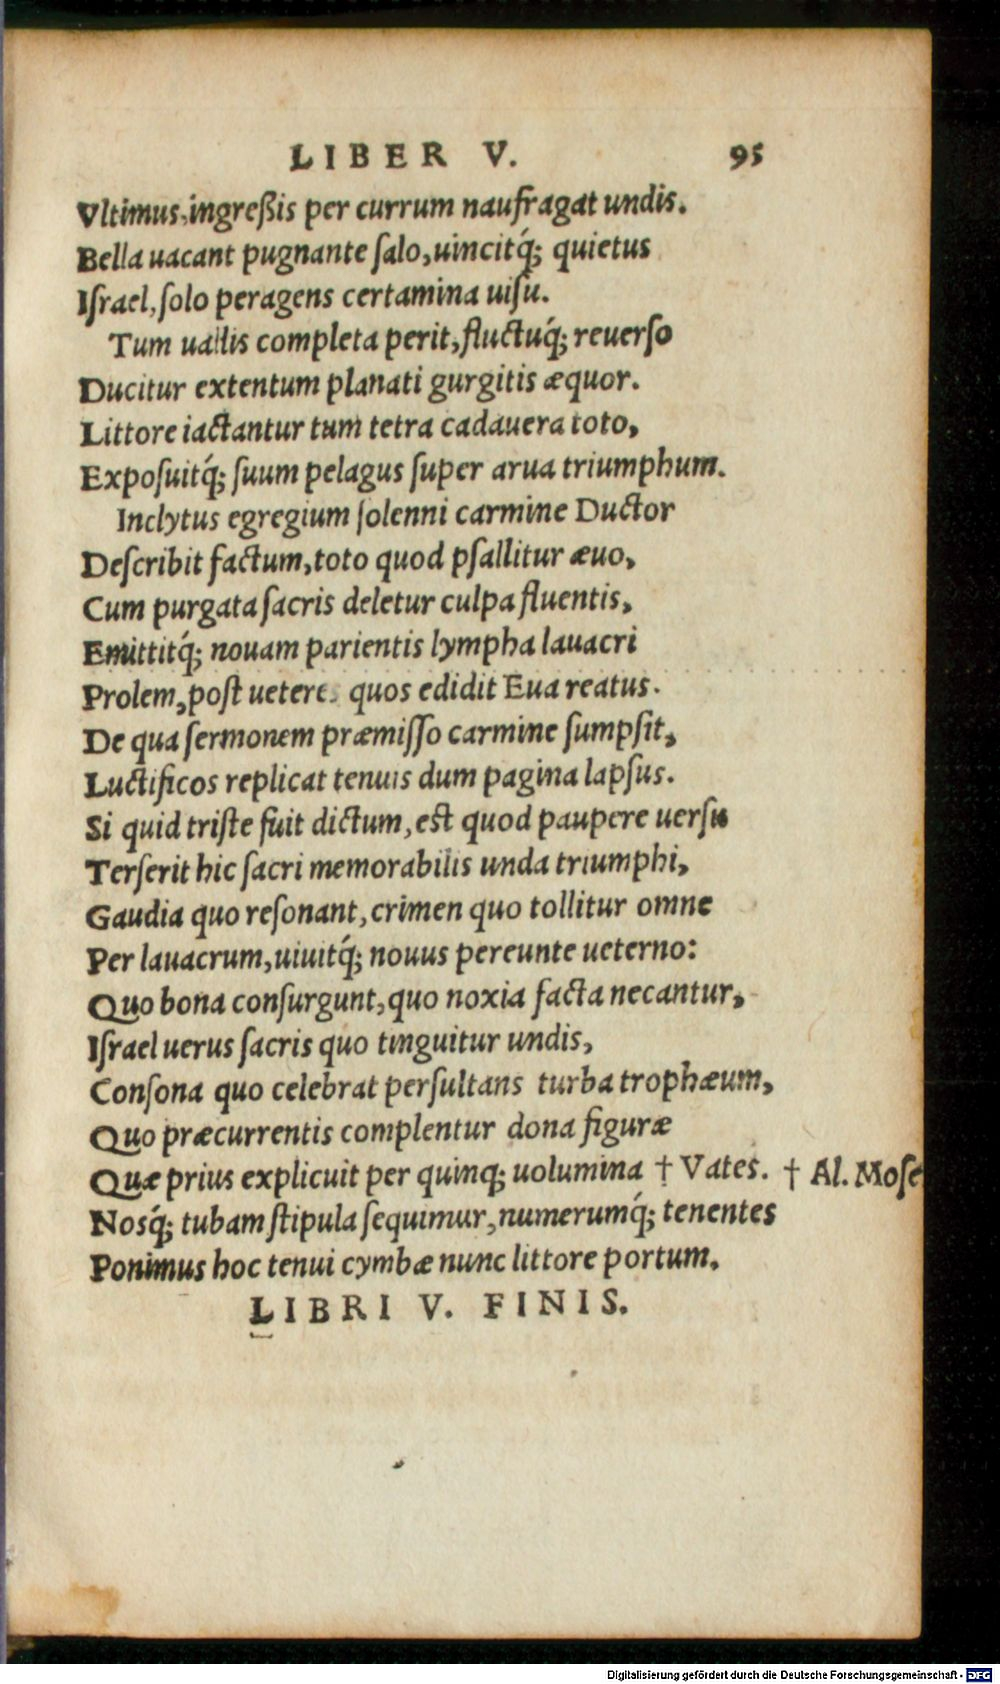 LIBER V. 95
Vltimus, ingreßis per currum naufragat undis.
Bella uacant pugnante ſalo, uincitq́; quietus
Iſrael, ſolo peragens certamina uiſu.
Tum uallis completa perit, fluctuq́; reuerſo
Ducitur extentum planati gurgitis æquor.
Littore iactantur tum tetra cadauera toto,
Expoſuitq́; ſuum pelagus ſuper arua triumphum.
Inclytus egregium ſolenni carmine Ductor
Deſcribit factum, toto quod pſallitur æuo,
Cum purgata ſacris deletur culpa fluentis,
Emittitq́; nouam parientis lympha lauacri
Prolem, poſt ueteres quos edidit Eua reatus.
De qua ſermonem præmiſſo carmine ſumpſit,
Luctificos replicat tenuis dum pagina lapſus.
Si quid triſte fuit dictum, eſt quod paupere uerſu
Terſerit hic ſacri memorabilis unda triumphi,
Gaudia quo reſonant, crimen quo tollitur omne
Per lauacrum, uiuitq́; nouus pereunte ueterno:
Quo bona conſurgunt, quo noxia facta necantur,
Iſrael uerus ſacris quo tinguitur undis,
Conſona quo celebrat perſultans turba trophæum,
Quo præcurrentis complentur dona figuræ
Quæ prius explicuit per quinq; uolumina † Vates. † Al. Moſe
Nosq́; tubam ſtipula ſequimur, numerumq́; tenentes
Ponimus hoc tenui cymbæ nunc littore portum.
LIBRI V. FINIS.
Digitalisierung gefördert durch die Deutsche Forschungsgemeinschaft - DFG